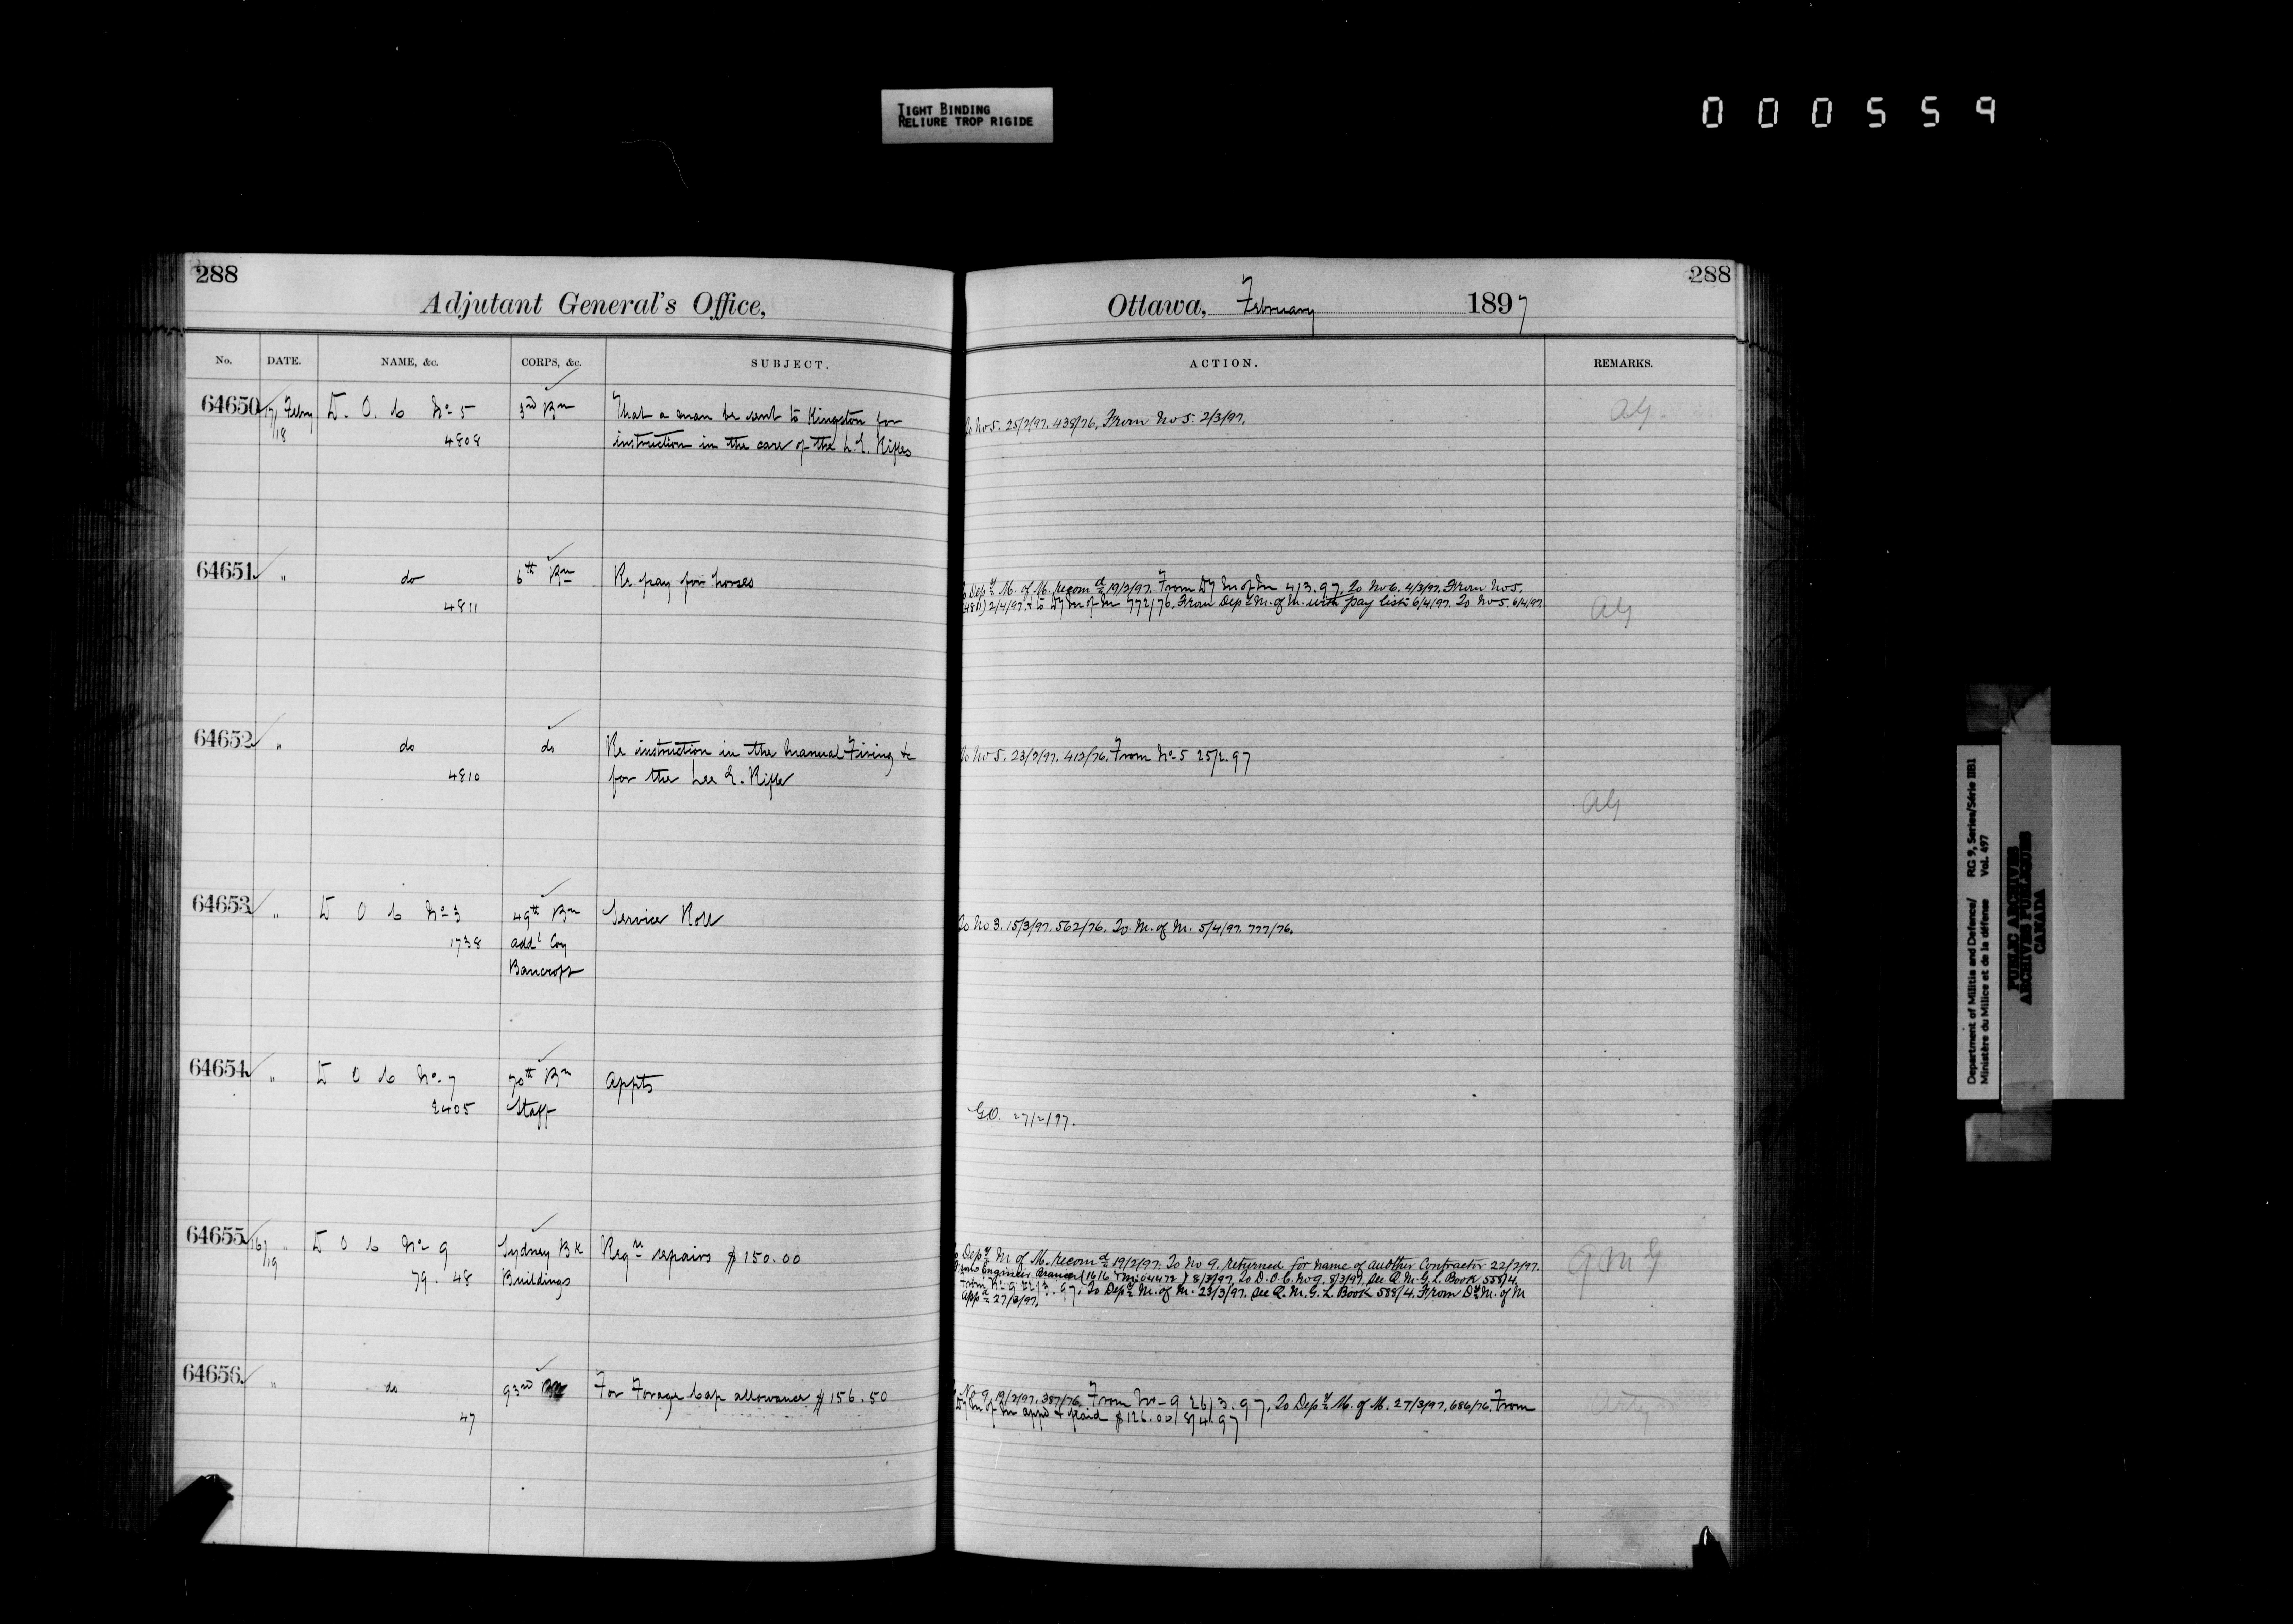 TIGHT BINDING
RELIURE TROP RIGIDE
000559
288
Adjutant General's Office,
No. DATE. NAME, &c. CORPS, &c. SUBJECT.
64650 17/18 Febry D. O. C No 5 3rd Bn That a man be sent to Kingston for
4808 instruction in the care of the L. E. Rifles
64651 " do 6th Bn Re pay for horses
4811
64652 " do do Re instruction in the Manual Firing &c
4810 for the Lee E. Rifle
64653 " D O C No 3 49th Bn Service Roll
1738 addl Coy
Bancroft
64654 " D O C No. 7 70th Bn Appts
2405 Staff
64655 16/19 " D O C No 9 Sydney Bk Reqn repairs $150.00
79. 48 Buildings
64656 " do 93rd Bn For Forage Cap allowance $156.50
47
288
Ottawa, February 1897
ACTION. REMARKS.
To No 5. 25/2/97. 438/76. From No 5. 2/3/97. AG.
To Depy M. of M. recomd 19/2/97. From Dy M of M 4/3.97. To No 6. 4/3/97. From No 5.
(4811) 2/4/97. & to Dy M of M 772/76. From Depy M. of M. with pay lists 6/4/97. To No 5. 6/4/97. AG
To No 5. 23/2/97. 413/76. From No 5 25/2.97
AG
To No 3. 15/3/97. 562/76. To M. of M. 5/4/97. 777/76.
G.O. 27/2/97.
To Depy M of M. recomd 19/2/97. To No 9. returned for name of another Contractor 22/2/97. QMG
Engineer Branch (1616 ) 8/3/97. To D.O.C. No 9. 8/3/97. See Q.M.G.L. Book 558/4.
From No 9 22/3.97. To Depy M. of M. 23/3/97. See Q.M.G.L. Book 588/4. From Dy M. of M
appd 27/3/97.
To No 9. 19/2/97. 387/76. From No 9 26/3.97. To Depy M. of M. 27/3/97. 686/76. From Arty
Dy M of M appd & paid $126.00 8/4.97
Department of Militia and Defence/ RG 9, Series/Série IIB1
Ministère du Milice et de la défense Vol. 497
PUBLIC ARCHIVES
ARCHIVES PUBLIQUES
CANADA